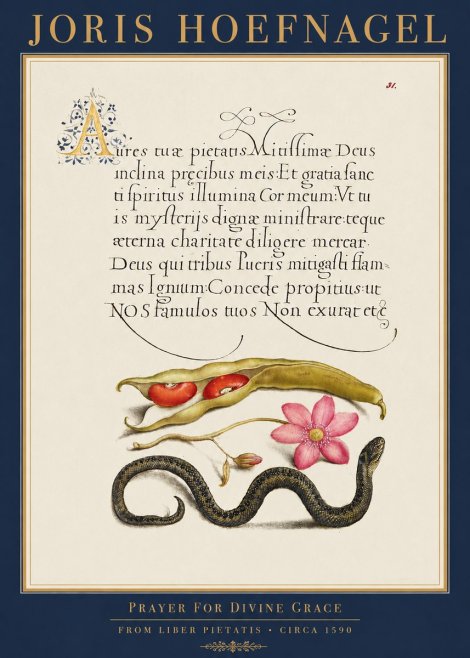 JORIS HOEFNAGEL
31.
Aures tuæ pietatis Mitissimæ Deus
inclina pręcibus meis: Et gratia sanc
ti spiritus illumina Cor meum: Vt tu
is mysterijs dignæ ministrare: teque
æterna charitate diligere merear.
Deus qui tribus Pueris mitigasti flam=
mas Ignium: Concede propitius: ut
NOS famulos tuos Non exurat etc
PRAYER FOR DIVINE GRACE
FROM LIBER PIETATIS • CIRCA 1590